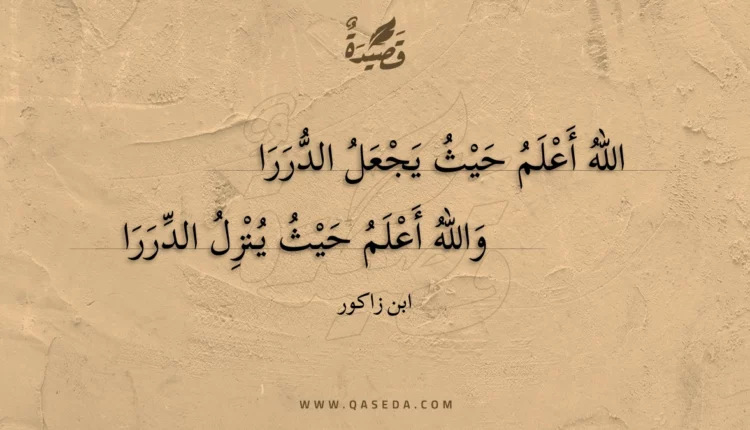 قَصِيدَةٌ
اللهُ أَعْلَمُ حَيْثُ يَجْعَلُ الدُّرَرَا
وَاللهُ أَعْلَمُ حَيْثُ يُنْزِلُ الدِّرَرَا
ابن زاكور
WWW.QASEDA.COM